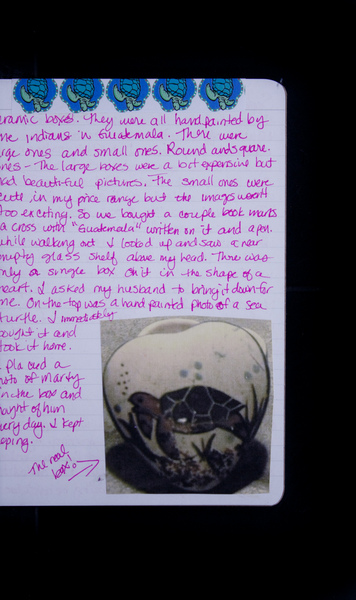 eramic boxes. They were all hand painted by
he Indians in Guatemala. There were
rge ones and small ones. Round and square.
nes- The large boxes were a bit expensive but
ad beautiful pictures. The small ones were
cute in my price range but the images weren't
too exciting. So we bought a couple book marks
a cross with "Guatemala" written on it and a pen.
while walking out I looked up and saw a near
empty glass shelf above my head. There was
nly a single box on it in the shape of a
heart. I asked my husband to bring it down for
me. On the top was a hand painted photo of a sea
turtle. I immediately
ought it and
took it home.
I placed a
hoto of Marty
in the box and
ayed
of him
very day. I kept
oping.
The real
box!